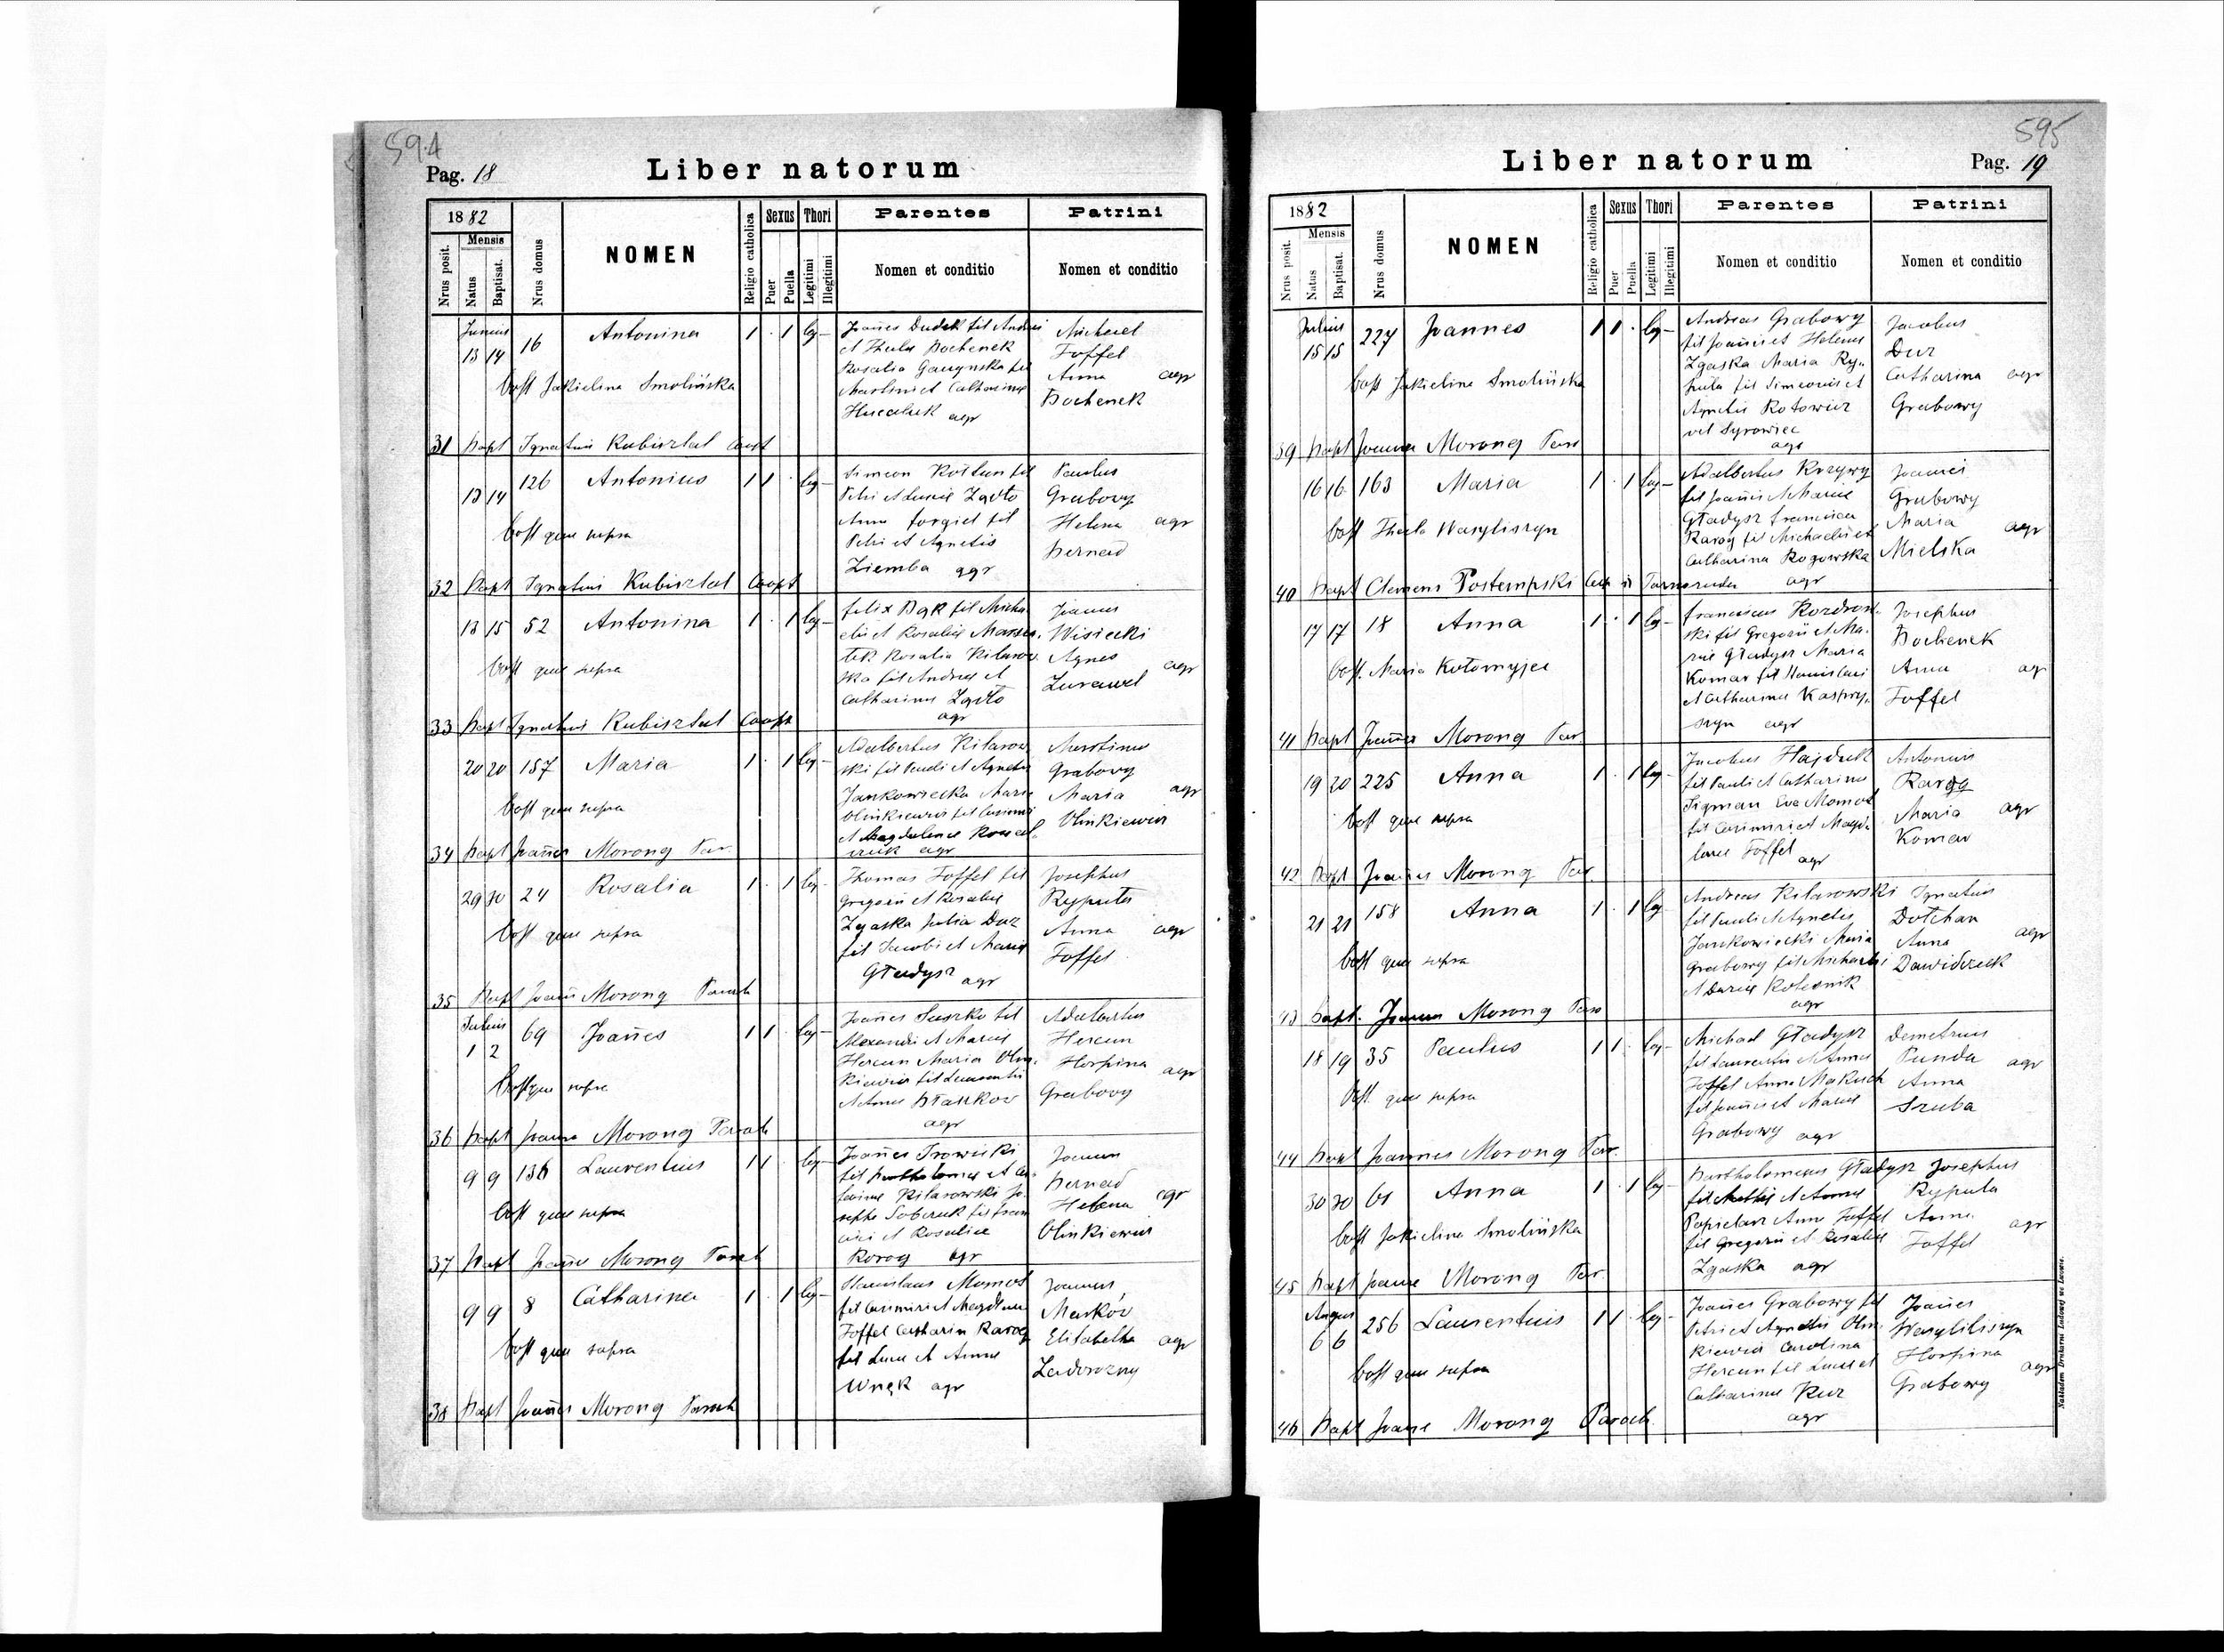 594
Pag. 18
Liber natorum
1882
Mensis
Nrus posit.
Natus
Baptisat.
Nrus domus
NOMEN
Religio catholica
Sexus
Puer
Puella
Thori
Legitimi
Illegitimi
Parentes
Nomen et conditio
Patrini
Nomen et conditio
Junius
13 14 16 Antonina 1 . 1 leg-
Joannes Dudek fil Andrei
et Theclae Bochenek
Rosalia
Martini et Catharinae
agr
Michael
Toffel
Anna agr
Bochenek
bost Jakielina Smolińska
31 Bapt Ignatius Kubisztal Coop
13 14 126 Antonius 1 1 . leg-
Simeon fil
Petri et Zgdto
Anna fil
Petri et Agnetis
Ziemba agr
Paulus
Grabowy
Helena agr
Bernad
bost quae supra
32 Bapt Ignatius Kubisztal Coopt
13 15 52 Antonina 1 . 1 leg-
Felix Bąk fil Micha
elis et Rosaliae
tek Rosalia Kilarow
ska fil Andreae et
Catharinae
agr
Joannes
Wisiecki
Agnes agr
Zurawel
bost quae supra
33 Bapt Ignatius Kubisztal Coopt
20 20 157 Maria 1 . 1 leg-
Adalbertus Kilarow
ski fil Pauli et Agnetis
Jankowiecka Maria
Olinkiewicz fil Casimiri
et Magdalenae Kowal
czuk agr
Martinus
Grabowy
Maria agr
Olinkiewicz
bost quae supra
34 Bapt Joannes Morong Par
29 30 24 Rosalia 1 . 1 leg-
Thomas Toffel fil
Gregorii et Rosaliae
Zgaska Julia Duz
fil Jacobi et Maria
Gładysz agr
Josephus
Ryputa
Anna agr
Toffel
bost quae supra
35 Bapt Joann Morong Paroch
Julius
1 2 69 Joañes 1 1 . leg-
Joañes Saszko fil
Alexandri et Mariae
Hercun Maria Olin
kiewicz fil Laurentii
et Annae
agr
Adalbertus
Hercun
Hospina agr
Grabowy
bost quae supra
36 Bapt Joannes Morong Paroch
9 9 136 Laurentius 1 1 . leg-
Joañes
fil Bartholomei et Ca
tharinae Kilarowski Jo
sepha Sobczuk fil Fran
cisci et Rosaliae
Rarog agr
Joannes
Bernad
Helena agr
Olinkiewicz
bost quae supra
37 Bapt Joañes Morong Paroch
9 9 8 Catharina 1 . 1 leg-
Stanislaus Momot
fil Casimiri et Magdalenae
Toffel Catharin Rarog
fil Lucae et Annae
Wnęk agr
Joannes
Markow
Elisabetha agr
Zadorozny
bost quae supra
38 Bapt Joañes Morong Paroch
595
Liber natorum
Pag. 19
1882
Mensis
Nrus posit.
Natus
Baptisat.
Nrus domus
NOMEN
Religio catholica
Sexus
Puer
Puella
Thori
Legitimi
Illegitimi
Parentes
Nomen et conditio
Patrini
Nomen et conditio
Julius
15 15 227 Joannes 1 1 . leg-
Andreas Grabowy
fil Joannis et Helenae
Zgaska Maria Ry-
puta fil Simeonis et
Agnetis Kotowicz
vel Syrowiec
agr
Jacobus
Duz
Catharina agr
Grabowy
bost Jakielina Smolińska
39 Bapt Joannes Morong Paro
16 16 163 Maria 1 . 1 leg-
Adalbertus Krzywy
fil Joannis et Mariae
Gładysz Francisca
Rarog fil Michaelis et
Catharina Rogowska
agr
Joannes
Grabowy
Maria agr
Mielska
bost Thecla Wasyliszyn
40 Bapt Clemens Postempski Coop in Tarnoruda
17 17 18 Anna 1 . 1 leg-
Franciscus
ski fil Gregorii et Ma-
riae Gładysz Maria
Komar fil Stanislai
et Catharinae Kaspry-
szyn agr
Josephus
Bochenek
Anna ag
Toffel
bost. Maria Kołomyjec
41 Bapt Joañes Morong Par
19 20 225 Anna 1 . 1 leg-
Jacobus Hajduk
fil Pauli et Catharinae
Sigman Eva Momot
fil Casimiri et Magda
lenae Toffel agr
Antonius
Rarog
Maria agr
Komar
bost quae supra
42 Bapt Joannes Morong Par
21 21 158 Anna 1 . 1 leg
Andreas Kilarowski
fil Pauli et Agnetis
Jankowiecki Maria
Grabowy fil Michaelis
et Dariae Kolesnik
agr
Ignatius
Dołhan
Anna agr
Dawidczuk
bost quae supra
43 Bapt. Joannes Morong Paro
18 19 35 Paulus 1 1 . leg-
Michael Gładysz
fil Laurentii et Annae
Toffel Anna Makuch
fil Joannis et Mariae
Grabowy agr
Demetrius
Punda agr
Anna
Szuba
bost. quae supra
44 Bapt Joannes Morong Par
30 30 61 Anna 1 . 1 leg-
Bartholomaeus Gładysz
fil Mathii et Annae
Papielarz Anna Toffel
fil Gregorii et Rosaliae
Zgaska agr
Josephus
Ryputa
Anna agr
Toffel
bost Jakielina Smolińska
45 Bapt Joanne Morong Par
Augus
6 6 256 Laurentius 1 1 . leg-
Joañes Grabowy fil
Petri et Agnetis Olin
kiewicz Carolina
Hercun fil Lucae et
Catharinae Kuz
agr
Joañes
Wasyliliszyn
Hospina agr
Grabowy
bost quae supra
46 Bapt Joanne Morong Paroch.
Nakładem Drukarni Ludowej we Lwowie.